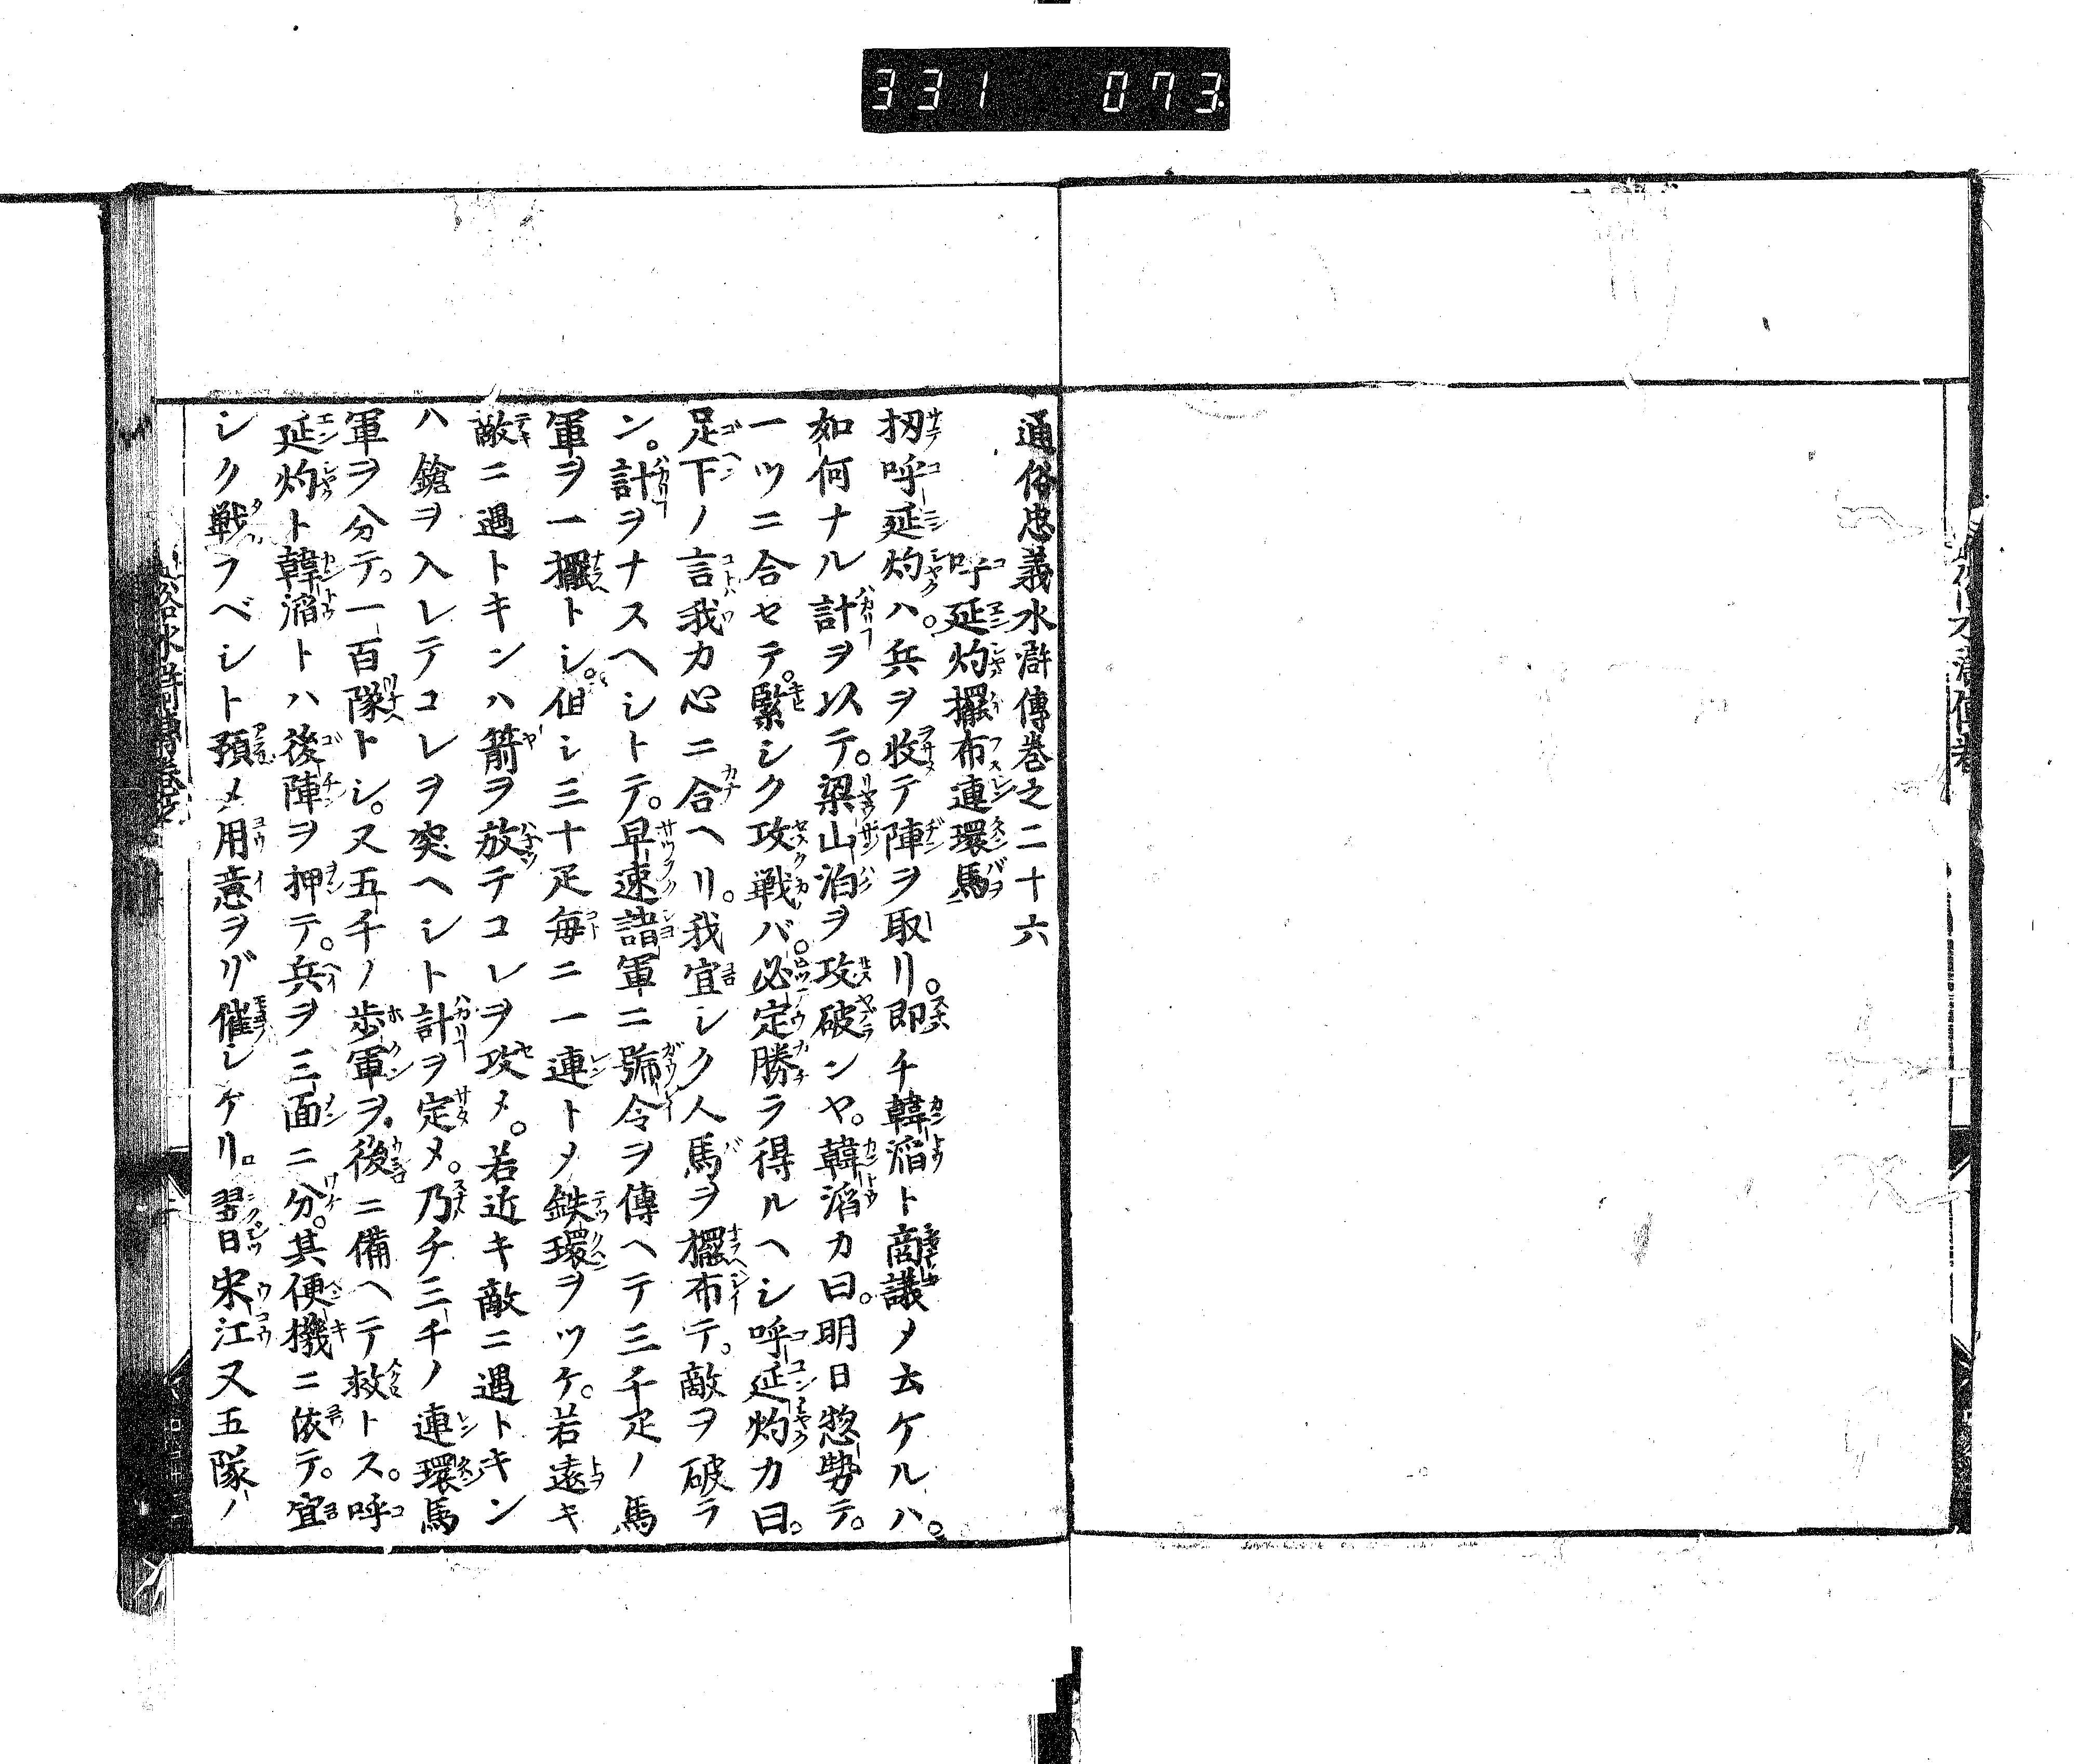 331 073
通俗忠義水滸傳巻之二十六
呼延灼擺布連環馬
扨呼延灼ハ。兵ヲ收テ陣ヲ取リ。即チ韓滔ト商議メ去ケルハ。
如何ナル計ヲ以テ。梁山泊ヲ攻破ンヤ。韓滔カ曰。明日惣勢テ。
一ツニ合セテ。緊シク攻戦バ。必定勝ラ得ルヘシ呼延灼カ曰。
足下ノ言我カ心ニ合ヘリ。我宜シク人馬ヲ擺布テ。敵ヲ破ラ
ン。計ヲナスヘシトテ。早速諸軍ニ號令ヲ傳ヘテ三千疋ノ馬
軍ヲ一擺トシ。但シ三十疋毎ニ一連トメ鉄環ヲツケ。若遠キ
敵ニ遇トキンハ箭ヲ放テコレヲ攻メ。若近キ敵ニ遇トキン
ハ鎗ヲ入レテコレヲ突ヘシト計ヲ定メ。乃チ三千ノ連環馬
軍ヲ分テ。一百隊トシ。又五千ノ歩軍ヲ。後ニ備ヘテ救トス。呼
延灼ト韓滔トハ後陣ヲ押テ。兵ヲ三面ニ分。其便機ニ依テ。宜
シク戦フベシト預メ用意ヲゾ催シケリ。翌日宋江又五隊ノ